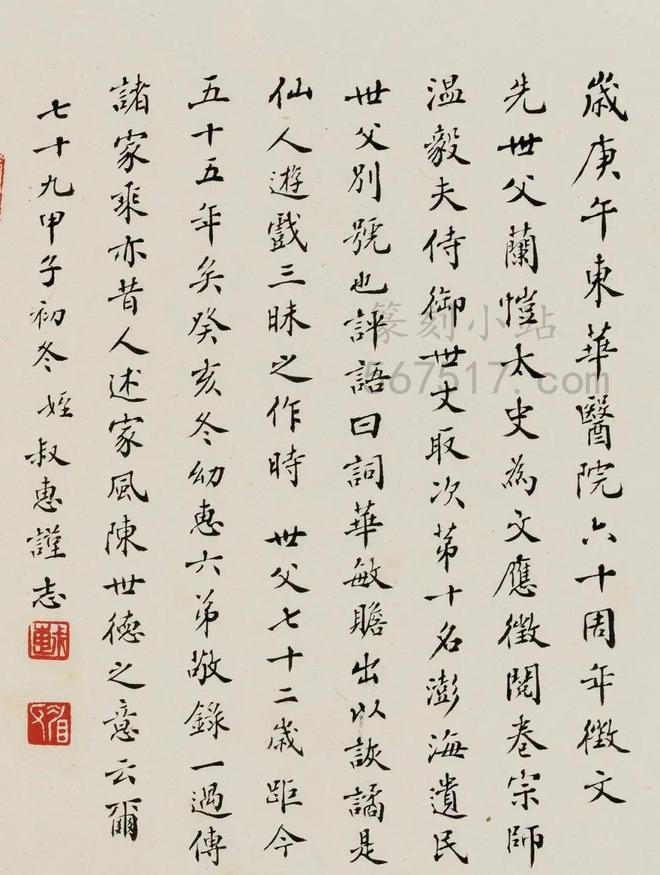 歲庚午東華醫院六十周年徵文
先世父蘭愷太史為文應徵閱卷宗師
温毅夫侍御世丈取次第十名澎海遺民
世父別號也評語曰詞華敏贍出以詼譎是
仙人遊戲三昧之作時 世父七十二歲距今
五十五年矣癸亥冬幼惠六弟敬錄一過傳
諸家乘亦昔人述家風陳世德之意云爾
七十九甲子初冬姪叔惠謹志
篆刻小站
567517.com